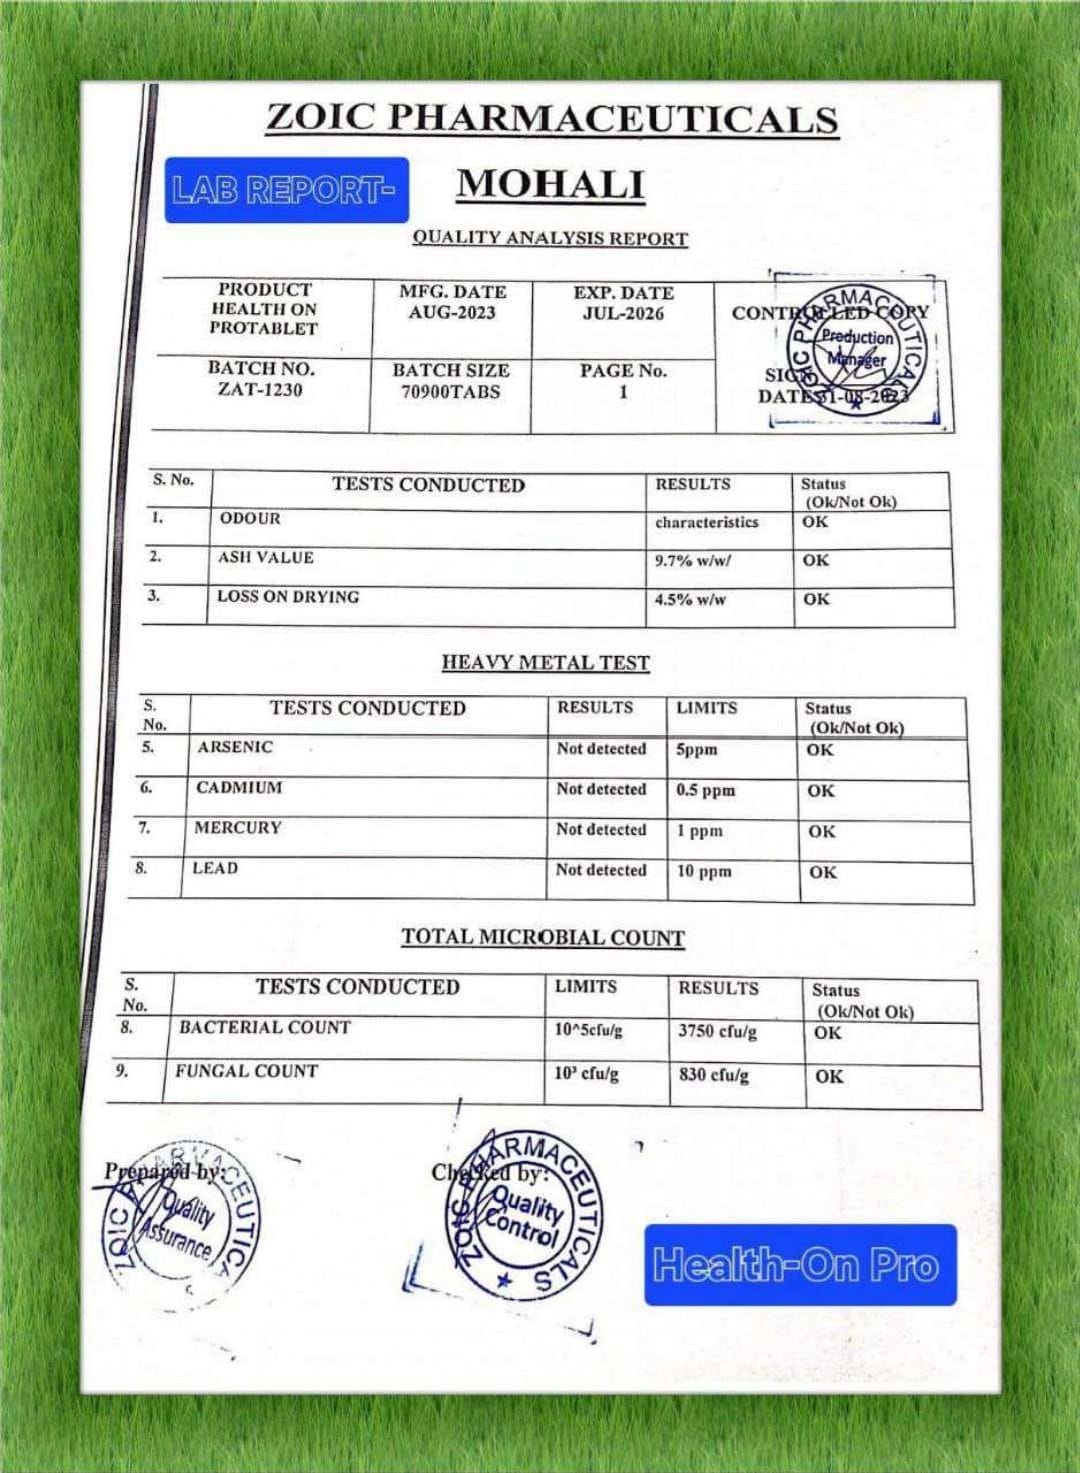 ZOIC PHARMACEUTICALS
LAB REPORT-
MOHALI
QUALITY ANALYSIS REPORT
PRODUCT HEALTH ON PROTABLET MFG. DATE AUG-2023 EXP. DATE JUL-2026 CONTROLLED COPY
BATCH NO. ZAT-1230 BATCH SIZE 70900TABS PAGE No. 1 SIGN DATE 31-08-2023
ZOIC PHARMACEUTICALS
Production
Manager
S. No. TESTS CONDUCTED RESULTS Status (Ok/Not Ok)
1. ODOUR characteristics OK
2. ASH VALUE 9.7% w/w/ OK
3. LOSS ON DRYING 4.5% w/w OK
HEAVY METAL TEST
S. No. TESTS CONDUCTED RESULTS LIMITS Status (Ok/Not Ok)
5. ARSENIC Not detected 5ppm OK
6. CADMIUM Not detected 0.5 ppm OK
7. MERCURY Not detected 1 ppm OK
8. LEAD Not detected 10 ppm OK
TOTAL MICROBIAL COUNT
S. No. TESTS CONDUCTED LIMITS RESULTS Status (Ok/Not Ok)
8. BACTERIAL COUNT 10^5cfu/g 3750 cfu/g OK
9. FUNGAL COUNT 10³ cfu/g 830 cfu/g OK
Prepared by: Checked by:
ZOIC PHARMACEUTICALS
Quality
Assurance
ZOIC PHARMACEUTICALS
Quality
Control
Health-On Pro